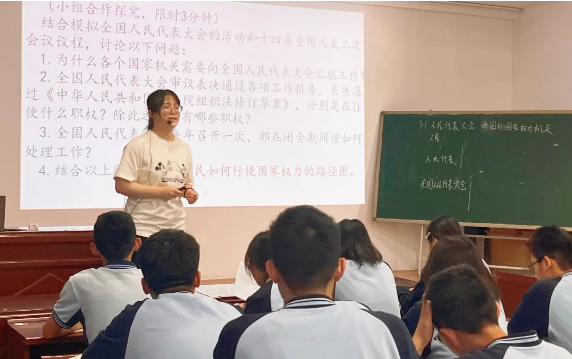 (小组合作探究，限时3分钟)
结合模拟全国人民代表大会的活动和十四届全国人大二次
会议议程，讨论以下问题：
1. 为什么各个国家机关需要向全国人民代表大会汇报工作？
2. 全国人民代表大会审议表决通过各项工作报告，表决通
过《中华人民共和 院组织法修订草案》，分别是在行
使什么职权？除此之 有哪些职权？
3. 全国人民代表 年召开一次，那在闭会期间该如何
处理工作？
4. 结合以上 民如何行使国家权力的路径图。
5.1 人民代表大会 我国的国家权力机关
人大代表
全国人民代表大会